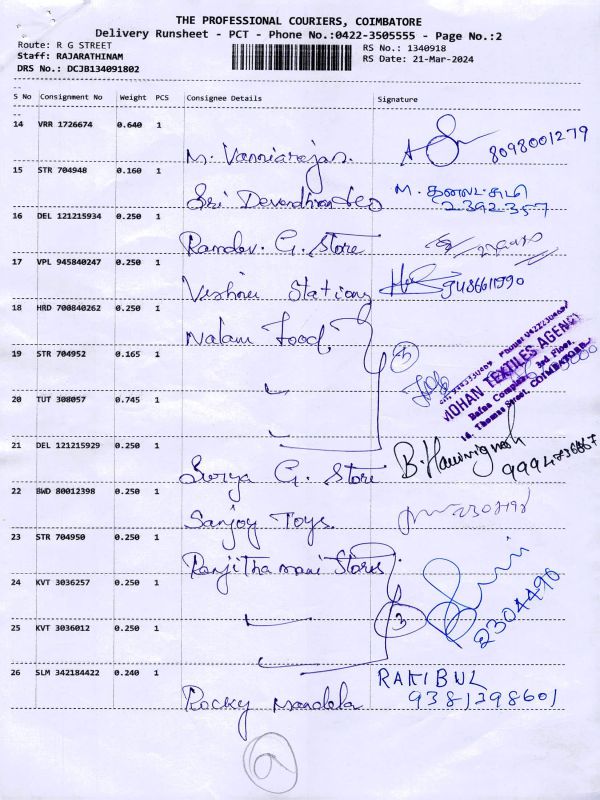 THE PROFESSIONAL COURIERS, COIMBATORE
Delivery Runsheet - PCT - Phone No.:0422-3505555 - Page No.:2
Route: R G STREET
RS No.: 1340918
Staff: RAJARATHINAM
RS Date: 21-Mar-2024
DRS No.: DCJB134091802
S No Consignment No Weight PCS Consignee Details Signature
14 VRR 1726674 0.640 1
M. Vanniarajan. 8098001279
15 STR 704948 0.160 1
Sri M.
2392357
16 DEL 121215934 0.250 1
Ramdev. G. Store
17 VPL 945840247 0.250 1
Vishnu Stationy
18 HRD 700840262 0.250 1
Nalam Food, 5
MOHAN TEXTILES AGENCY
Bafna Complex, 3rd Floor,
Thomas Street, COIMBATORE
19 STR 704952 0.165 1
20 TUT 308057 0.745 1
21 DEL 121215929 0.250 1
Surya G. Store
22 BWD 80012398 0.250 1
Sanjoy Toys.
23 STR 704950 0.250 1
Ranjithamani Stores
24 KVT 3036257 0.250 1
3 2304490
25 KVT 3036012 0.250 1
26 SLM 342184422 0.240 1
RAKIBUL
Rocky 9381398601